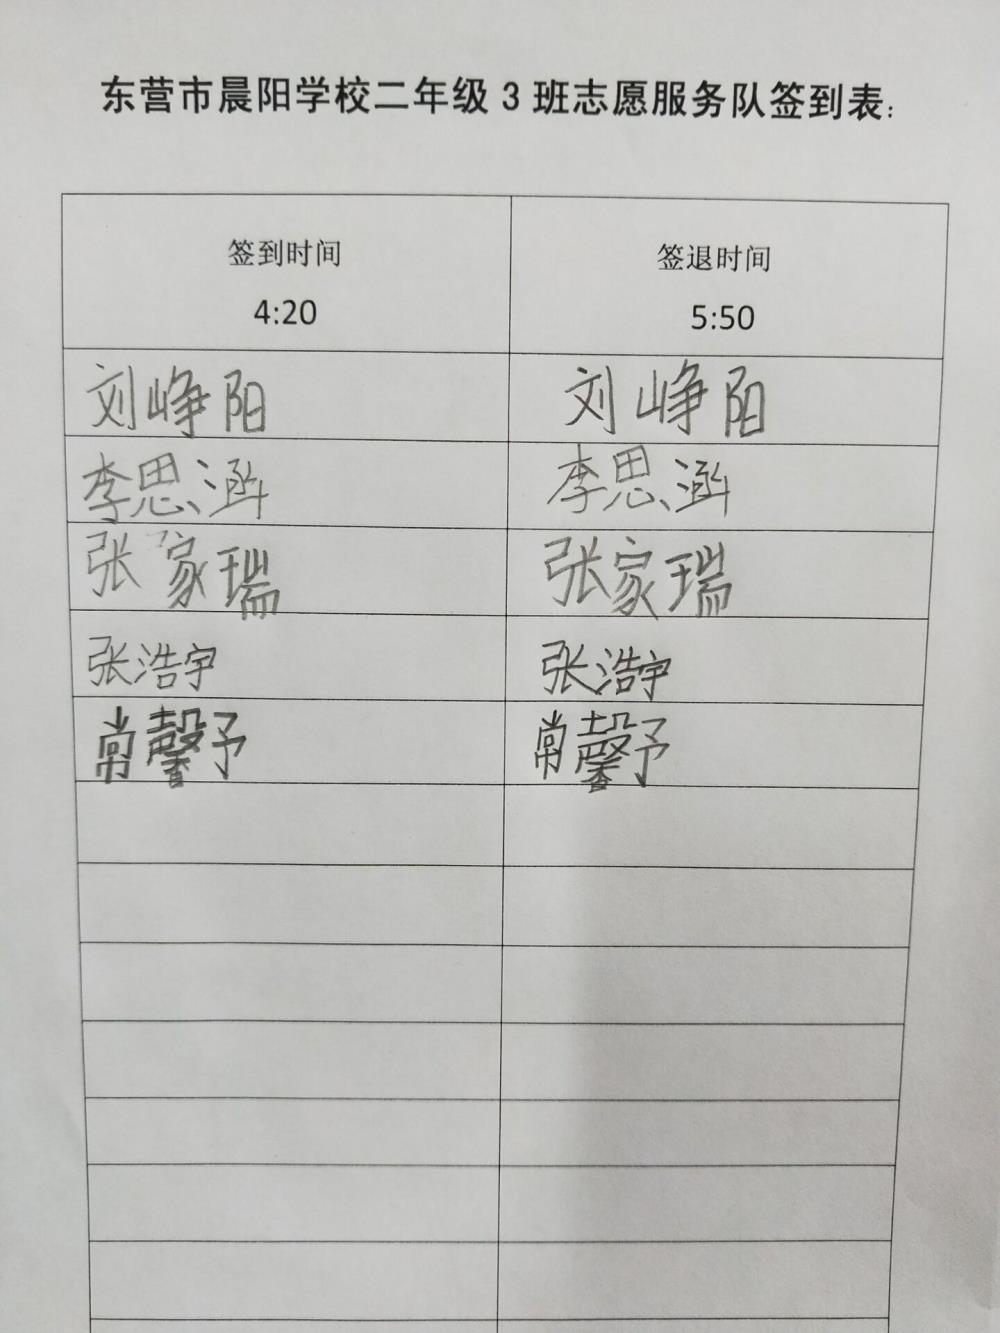 东营市晨阳学校二年级 3 班志愿服务队签到表：
签到时间 签退时间
4:20 5:50
刘峥阳 刘峥阳
李思涵 李思涵
张家瑞 张家瑞
张浩宇 张浩宇
常馨予 常馨予